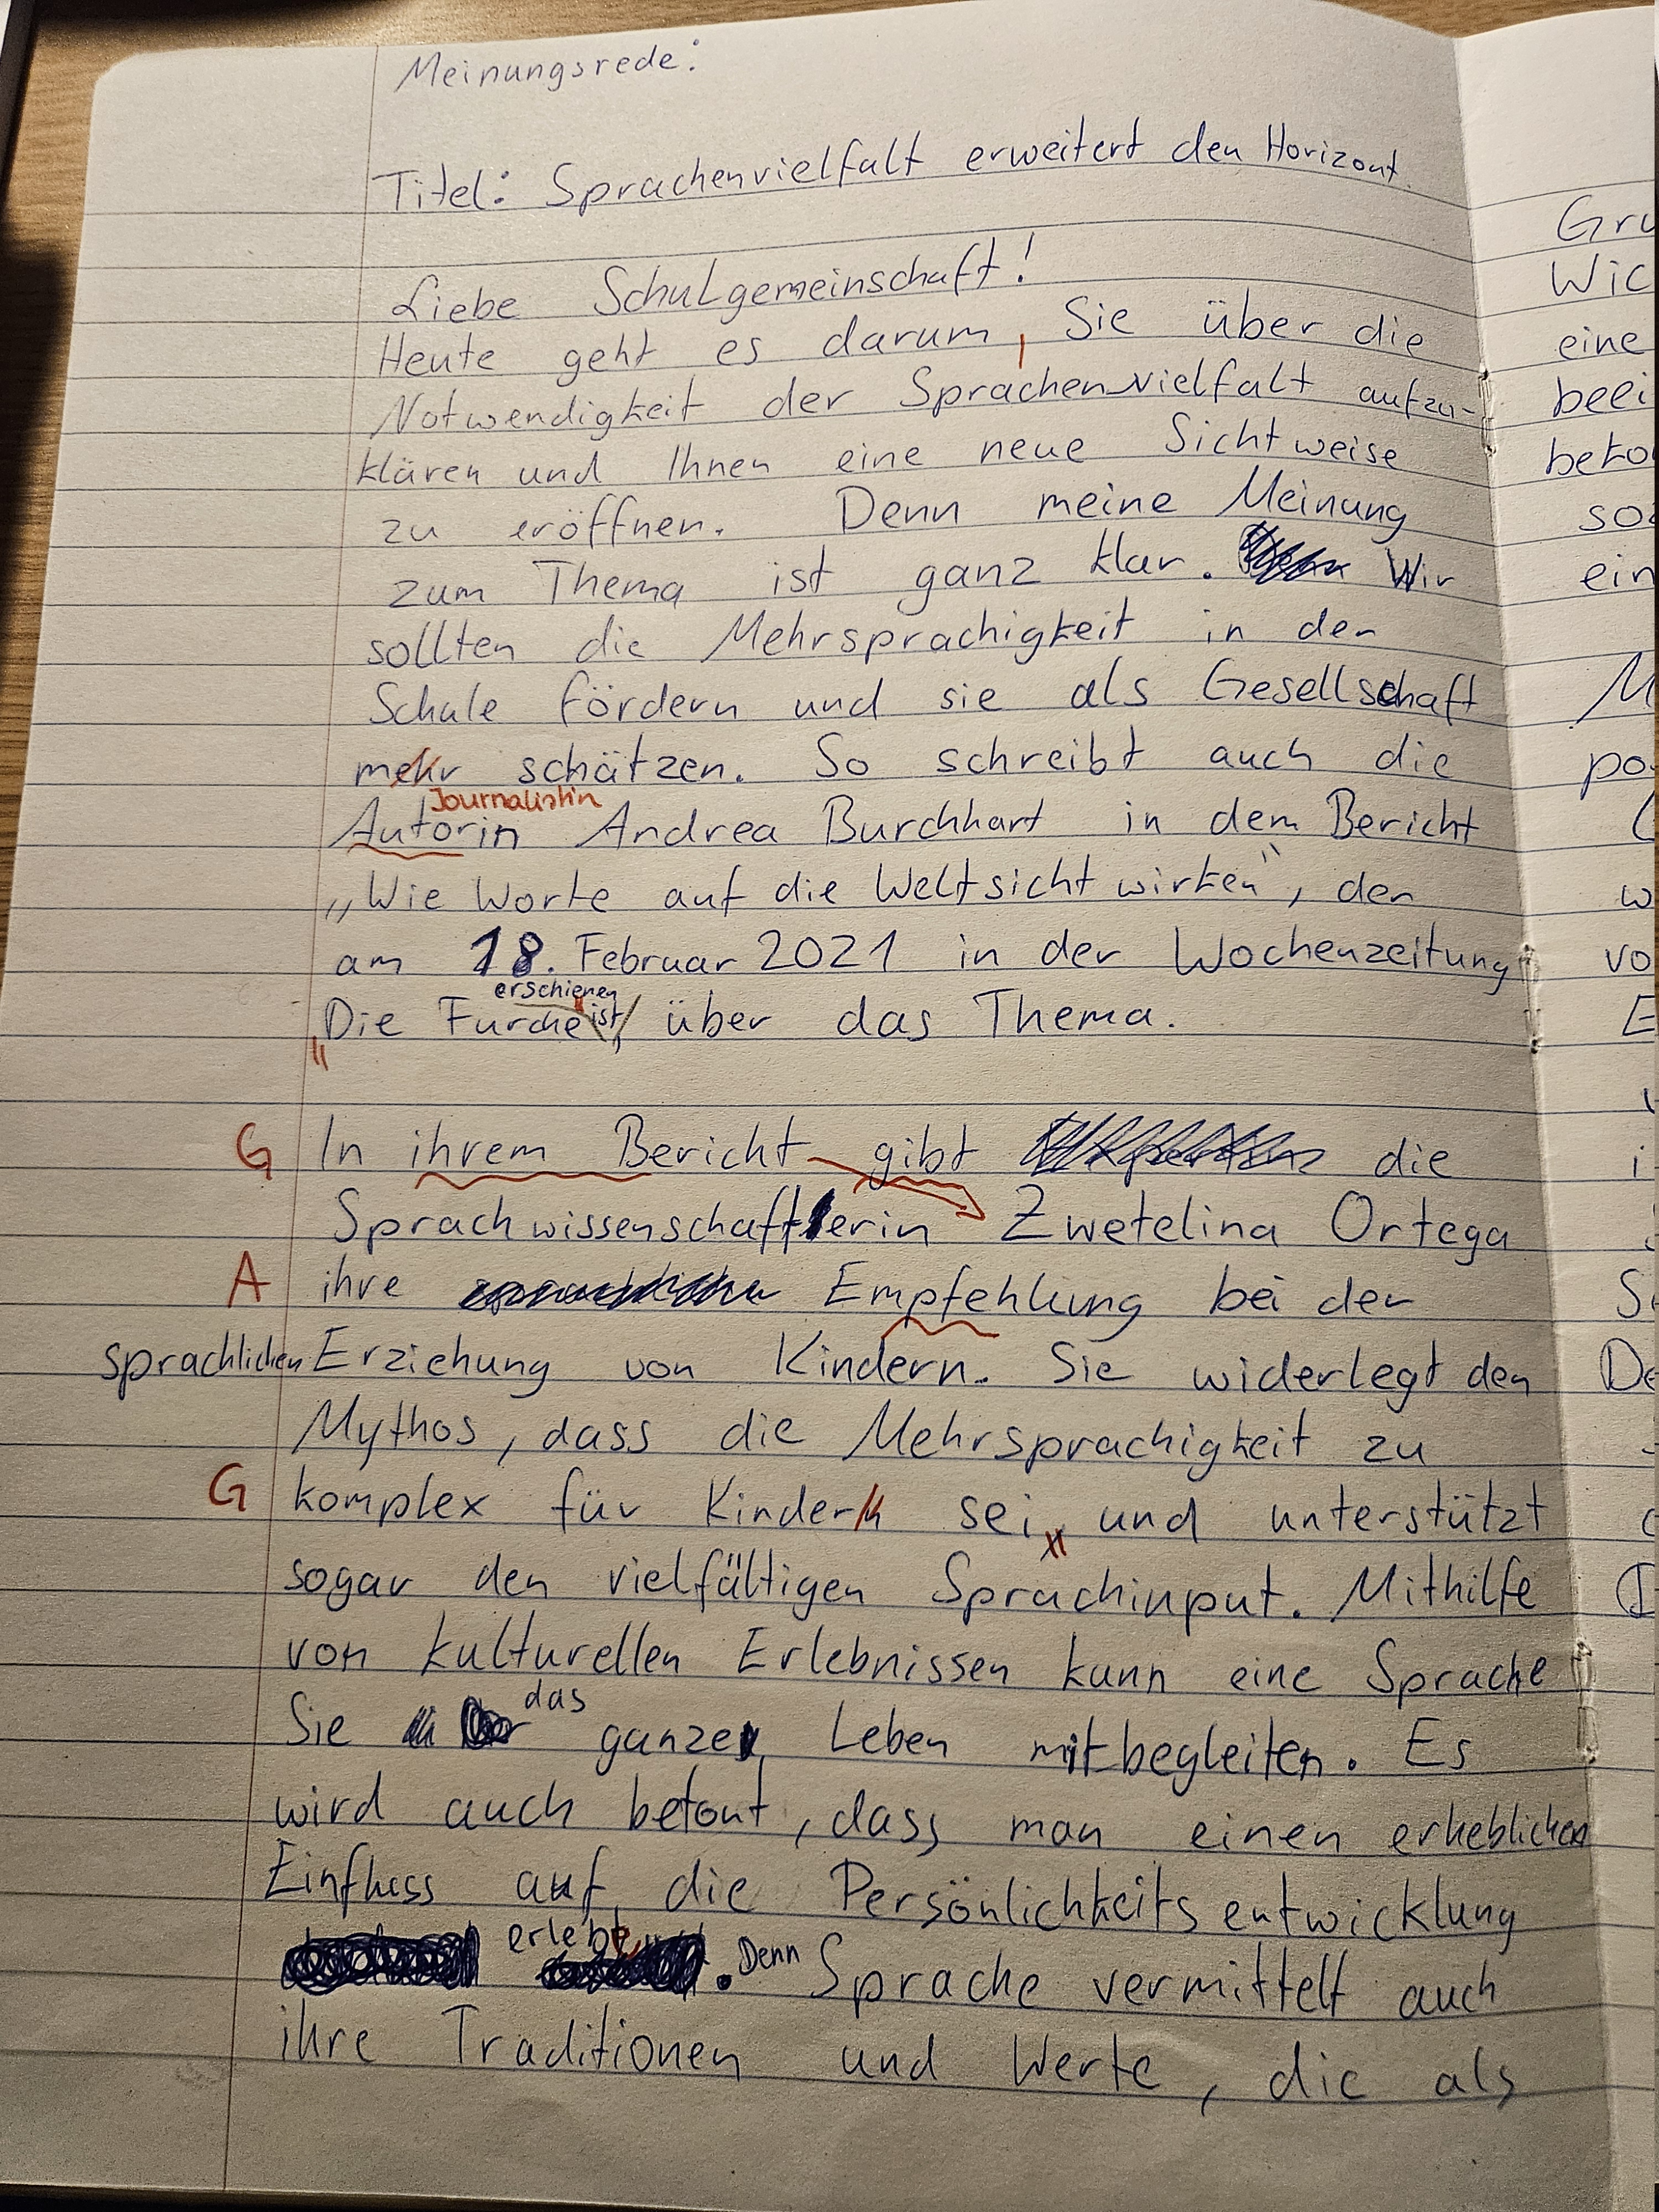 Meinungsrede:
Titel: Sprachenvielfalt erweitert den Horizont.
Liebe Schulgemeinschaft!
Heute geht es darum, Sie über die
Notwendigkeit der Sprachenvielfalt aufzu-
klären und Ihnen eine neue Sichtweise
zu eröffnen. Denn meine Meinung
zum Thema ist ganz klar. Wir
sollten die Mehrsprachigkeit in der
Schule fördern und sie als Gesellschaft
mehr schätzen. So schreibt auch die
Journalistin
Autorin Andrea Burchhart in dem Bericht
„Wie Worte auf die Weltsicht wirken“, der
am 18. Februar 2021 in der Wochenzeitung
erschienen
„Die Furche ist, über das Thema.
G In ihrem Bericht gibt die
Sprachwissenschaftlerin Zwetelina Ortega
A ihre Empfehlung bei der
sprachlichen Erziehung von Kindern. Sie widerlegt den
Mythos, dass die Mehrsprachigkeit zu
G komplex für Kindern sei, und unterstützt
sogar den vielfältigen Sprachinput. Mithilfe
von kulturellen Erlebnissen kann eine Sprache
das
Sie ganze Leben mitbegleiten. Es
wird auch betont, dass man einen erheblichen
Einfluss auf die Persönlichkeitsentwicklung
erlebt. Denn Sprache vermittelt auch
ihre Traditionen und Werte, die als
Gru
Wic
eine
beei
beto
ein
M
po
w
vo
E
i
De